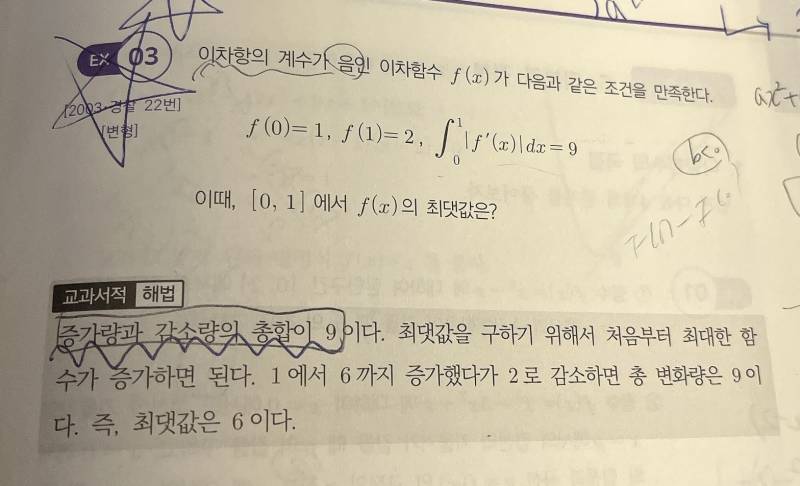 EX 03
이차항의 계수가 음인 이차함수 f(x)가 다음과 같은 조건을 만족한다.
[2003 경찰 22번]
[변형]
f(0)=1, f(1)=2, ∫₀¹|f′(x)|dx=9
b<0
이때, [0, 1]에서 f(x)의 최댓값은?
교과서적 해법
증가량과 감소량의 총합이 9이다. 최댓값을 구하기 위해서 처음부터 최대한 함
수가 증가하면 된다. 1에서 6까지 증가했다가 2로 감소하면 총 변화량은 9이
다. 즉, 최댓값은 6이다.